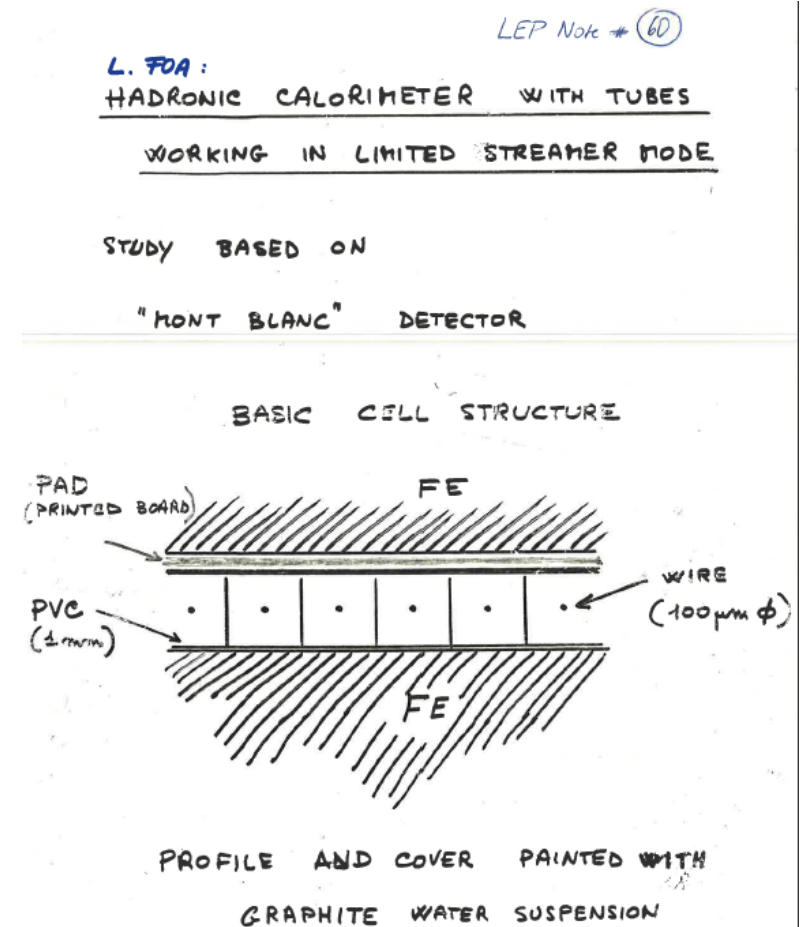 LEP Note # 60
L. FOA:
HADRONIC CALORIMETER WITH TUBES
WORKING IN LIMITED STREAMER MODE
STUDY BASED ON
"MONT BLANC" DETECTOR
BASIC CELL STRUCTURE
PAD
(PRINTED BOARD)
FE
WIRE
(100 μm ϕ)
PVC
(1 mm)
FE
PROFILE AND COVER PAINTED WITH
GRAPHITE WATER SUSPENSION